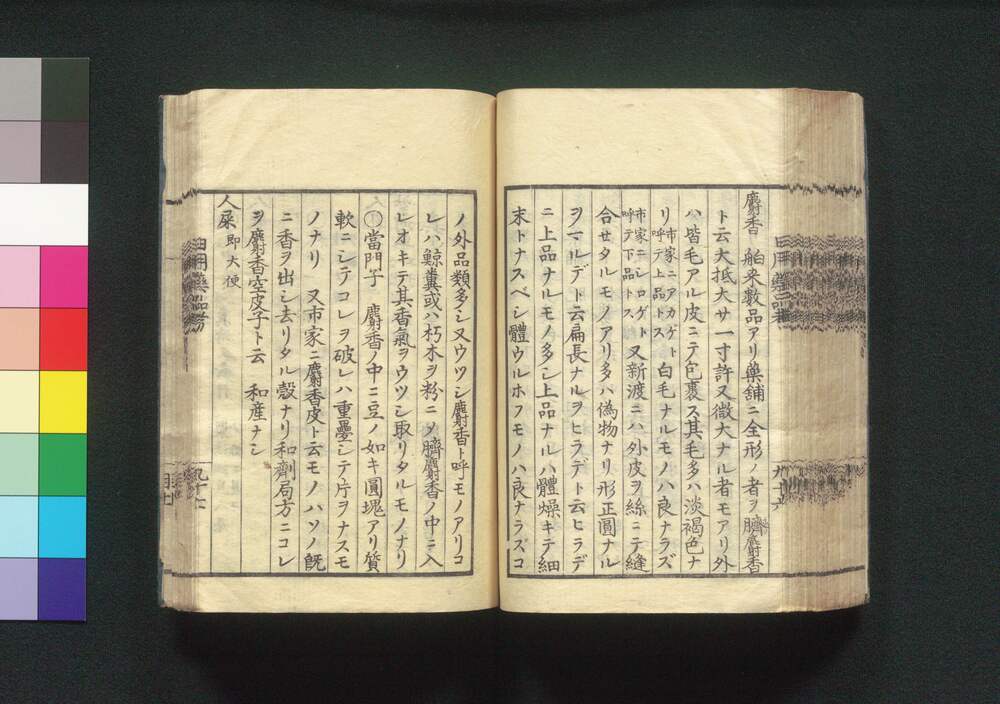 麝香 舶来數品アリ藥舗ニ全形ノ者ヲ臍麝香
ト云大抵大サ一寸許又微大ナル者モアリ外
ハ皆毛アル皮ニテ包裹ス其毛多ハ淡褐色ナ
リ市家ニアカゲト呼テ上品トス白毛ナルモノハ良ナラズ
市家ニシロゲト呼テ下品トス又新渡ニハ外皮ヲ絲ニテ縫
合セタルモノアリ多ハ偽物ナリ形正圓ナル
ヲマルデト云扁長ナルヲヒラデト云ヒラデ
ニ上品ナルモノ多シ上品ナルハ體燥キテ細
末トナスベシ體ウルホフモノハ良ナラズコ
ノ外品類多シ又ウツシ麝香ト呼モノアリコ
レハ鯨糞或ハ朽木ヲ粉ニメ臍麝香ノ中ニ入
レオキテ其香氣ヲウツシ取リタルモノナリ
○當門子 麝香ノ中ニ豆ノ如キ圓塊アリ質
軟ニシテコレヲ破レハ重疊シテ片ヲナスモ
ノナリ 又市家ニ麝香皮ト云モノハソノ既
ニ香ヲ出シ去リタル殻ナリ和劑局方ニコレ
ヲ麝香空皮子ト云 和産ナシ
人屎 即大便